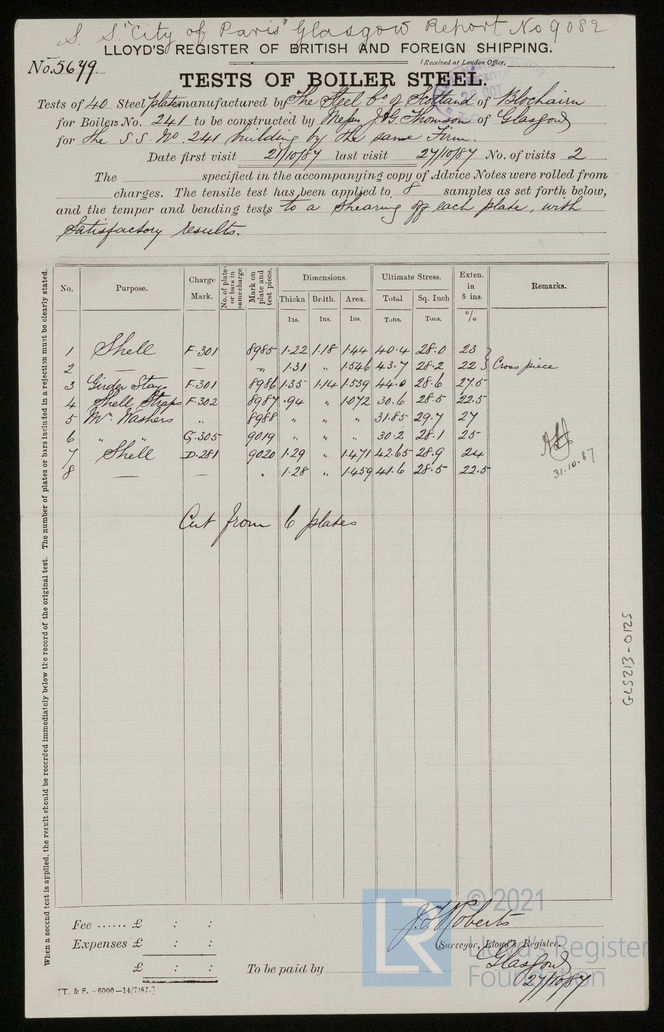 S. S. "City of Paris" Glasgow Report No 9082
LLOYD'S REGISTER OF BRITISH AND FOREIGN SHIPPING.
No. 5679.
(Received at London Office,
TESTS OF BOILER STEEL.
Tests of 40 Steel plates manufactured by The Steel Co. of Scotland of Blochairn
for Boilers No. 241 to be constructed by Messrs J & G. Thomson of Glasgow
for the S.S. No. 241 building by the same Firm.
Date first visit 21/10/87 last visit 27/10/87 No. of visits 2
The specified in the accompanying copy of Advice Notes were rolled from
charges. The tensile test has been applied to 8 samples as set forth below,
and the temper and bending tests to a shearing off each plate, with
satisfactory results.
No. Purpose. Charge Mark. No. of plates or bars in same charge Mark on plate and test piece. Dimensions. Ultimate Stress. Exten. in 8 ins. Remarks.
Thickn Brdth. Area. Total Sq. Inch
Ins. Ins. Ins. Tons. Tons. %
1 Shell F.301 8985 1.22 1.18 1.44 40.4 28.0 23
2 — — " 1.31 " 1.546 43.7 28.2 22 } Cross piece
3 Girder Stays F.301 8986 1.35 1.14 1.539 44.0 28.6 27.5
4 Shell Straps F.302 8987 .94 " 1.072 30.6 28.5 22.5
5 Mr. Washers " 8988 " " " 31.85 29.7 27
6 " " G.305 9019 " " " 30.2 28.1 25
7 Shell D.281 9020 1.29 " 1.471 42.65 28.9 24
8 — — " 1.28 " 1.459 41.6 28.5 22.5
31.10.87
Cut from 6 plates
When a second test is applied, the result should be recorded immediately below the record of the original test. The number of plates or bars included in a rejection must be clearly stated.
GLS213-0125
Fee ...... £ : :
Expenses £ : :
£ : :
To be paid by
J. J. Roberts
Surveyor, Lloyd's Register.
Glasgow
27/10/87
[T. & S. - 6000 - 14/7/87.]
© 2021
LR
Lloyd's Register
Foundation